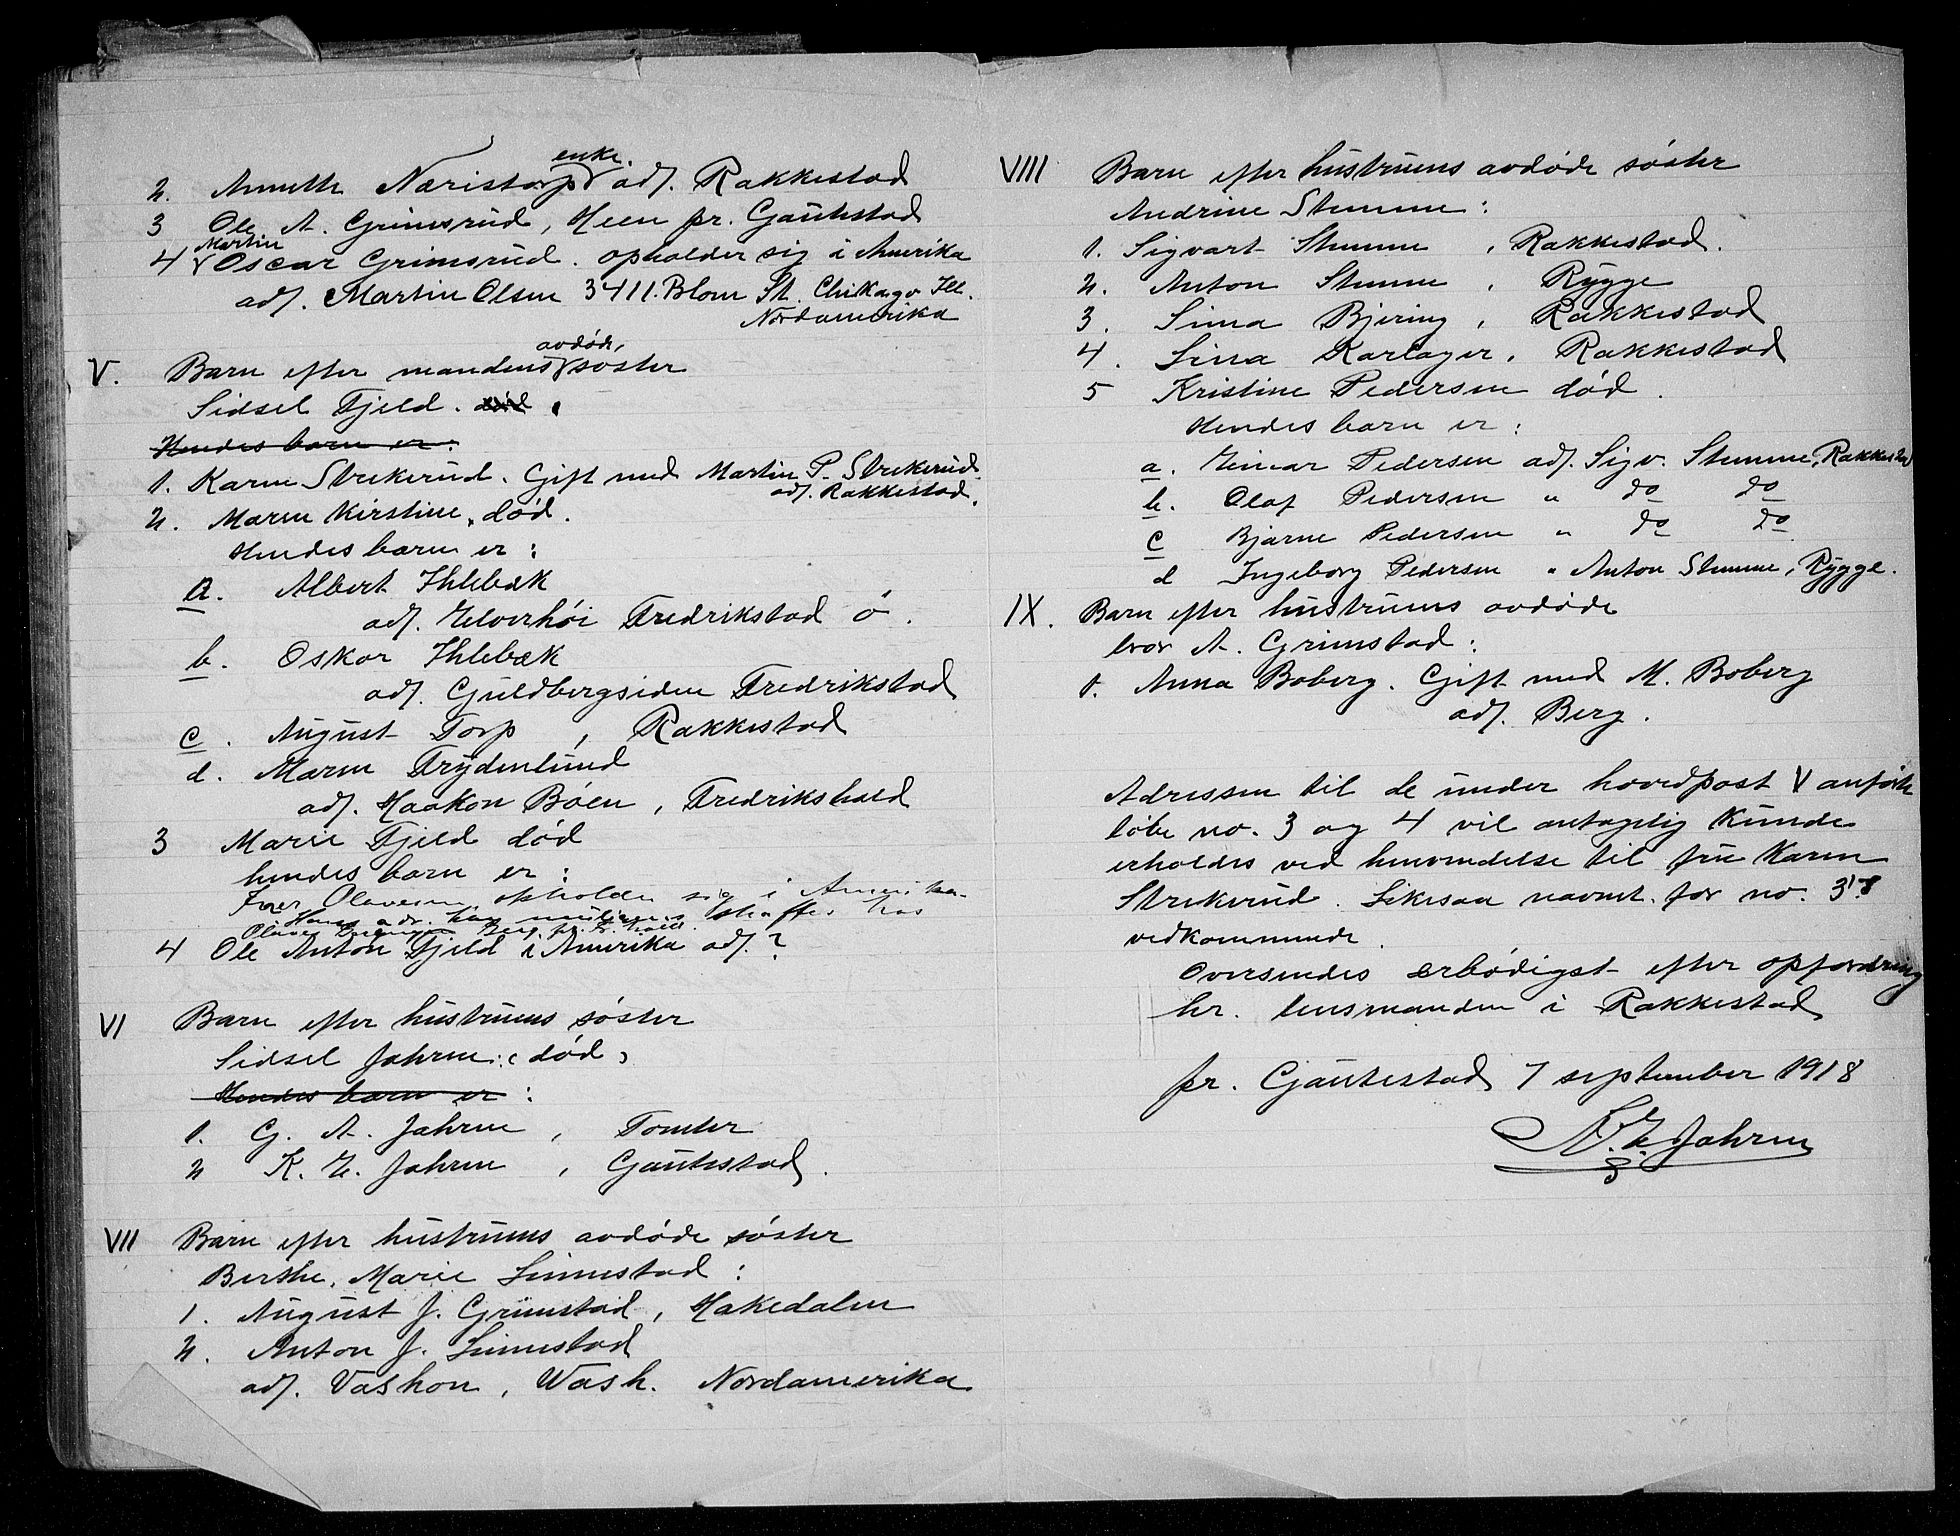 2. Annette Næristorp enke. adr. Rakkestad
3 Ole A. Grimsrud, Heen pr. Gautestad
4 Martin Oscar Grimsrud. opholder sig i Amerika
adr. Martin Olsen 3411. Blom St. Chikago Ill.
Nordamerika
V. Barn efter mandens avdøde søster
Sidsel Fjeld. død.
Hendes barn er:
1. Karen Strekerud. Gift med Martin P. Strekerud
adr. Rakkestad.
2. Maren Kirstine, død.
Hendes barn er:
a. Albert Ihlebæk
adr. Elverhøi Fredrikstad ø.
b. Oskar Ihlebæk
adr. Guldbergsiden Fredrikstad
c. August Torp, Rakkestad
d. Maren Frydenlund
adr. Haakon Böen, Fredrikshald
3 Marie Fjeld død
hendes barn er:
Iver Olavesen opholder sig i Amerika.
Hans adr. kan muligens skaffes hos
Olaves Berg, pr. F.hald.
4 Ole Anton Fjeld i Amerika adr.?
VI Barn efter hustruens søster
Sidsel Jahren: (død)
Hendes barn er:
1. G. A. Jahren, Tomter
2 K. E. Jahren, Gautestad.
VII Barn efter hustruens avdøde søster
Berthe Marie Linnestad:
1. August J. Grimstad, Hakedalen
2. Anton J. Linnestad
adr. Vashon, Wash. Nordamerika
VIII Barn efter hustruens avdøde søster
Andrine Stumme:
1. Sigvart Stumme, Rakkestad.
2. Anton Stumme, Rygge
3. Sina Bjering, Rakkestad
4. Lina Karlager, Rakkestad
5 Kristine Pedersen død.
Hendes barn er:
a. Einar Pedersen adr. Sigv. Stumme, Rakkestad
b. Olaf Pedersen " do do
c Bjarne Pedersen " do do
d Ingeborg Pedersen " Anton Stumme, Rygge.
IX. Barn efter hustruens avdøde
bror A. Grimstad:
1. Anna Boberg. Gift med M. Boberg
adr. Berg.
Adressen til de under hovedpost V anførte
løbe no. 3 og 4 vil antagelig kunde
erholdes ved henvendelse til fru Karen
Strekerud. Likesaa navnet for no. 3's
vedkommende.
Oversendes ærbødigst efter opfordring
hr. lensmanden i Rakkestad
pr. Gautestad 7 september 1918
K. E. Jahren